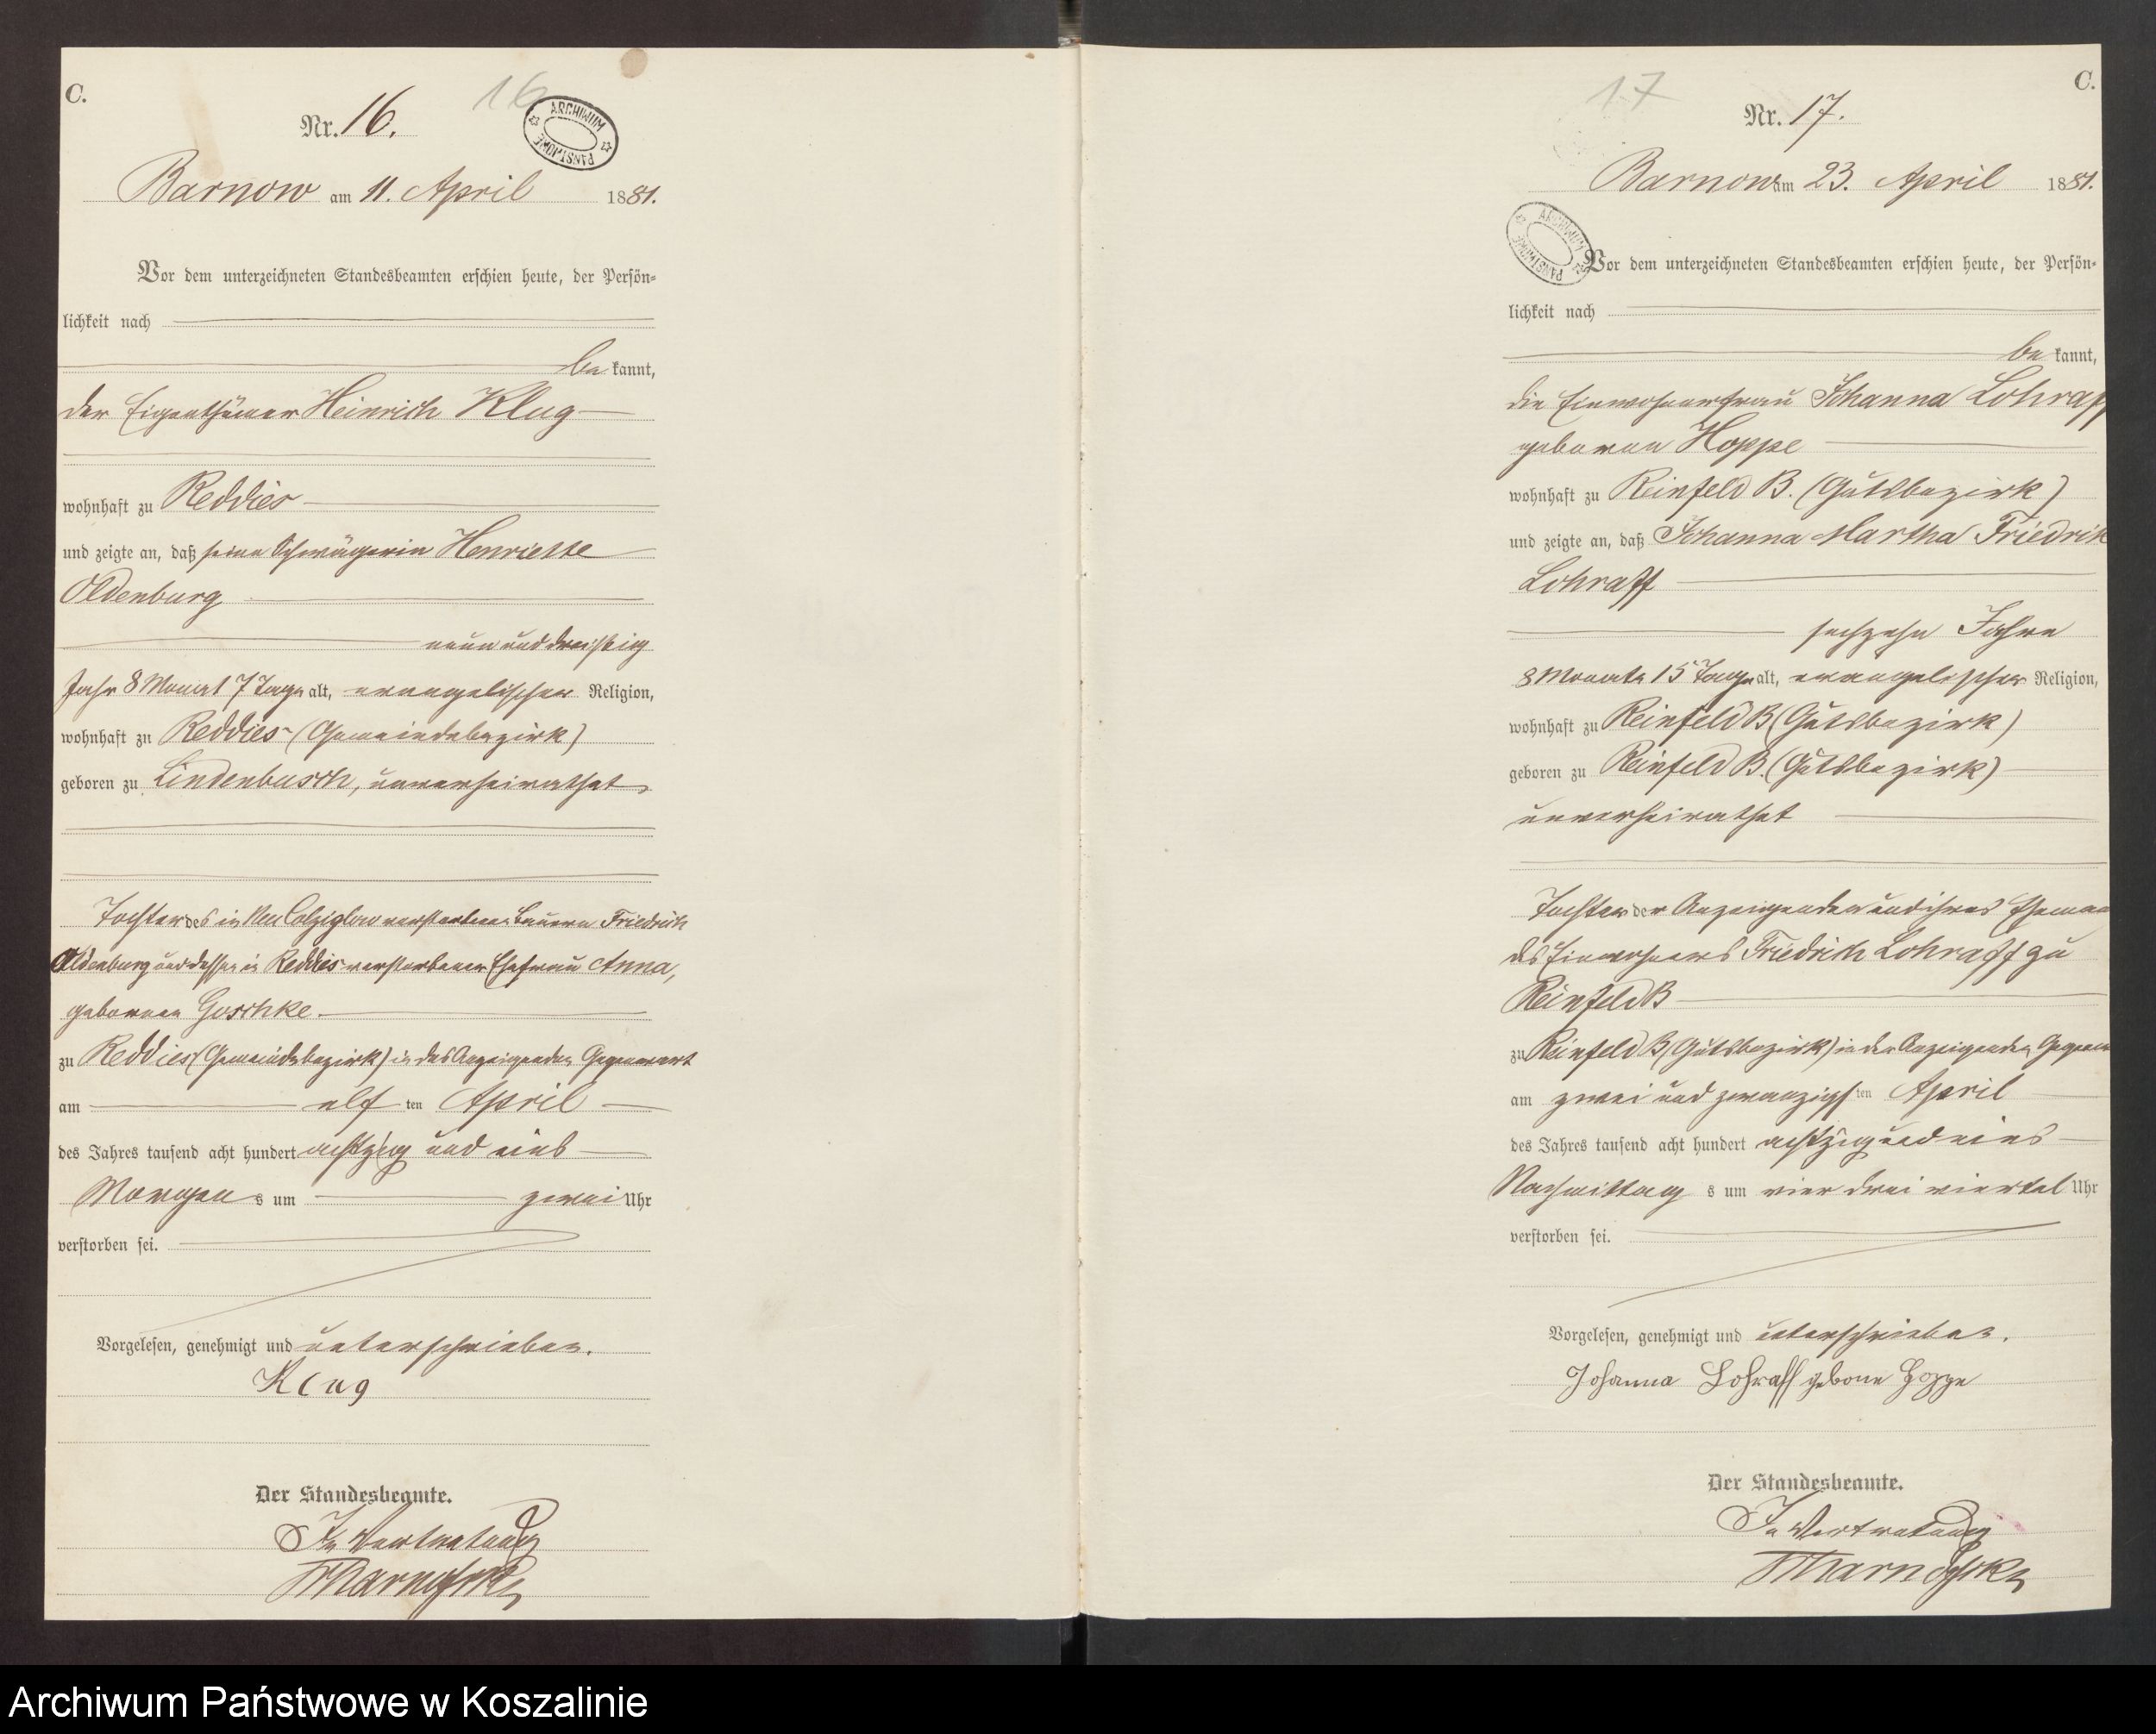 C.
16
Nr. 16.
ARCHIWUM PAŃSTWOWE
Barnow am 11. April 1881.
Vor dem unterzeichneten Standesbeamten erschien heute, der Persön-
lichkeit nach
be kannt,
der Eigenthümer Heinrich Klug
wohnhaft zu Reddies
und zeigte an, daß seine Schwägerin Henriette
Oldenburg
neun und dreißig
Jahr 8 Monat 7 Tage alt, evangelischer Religion,
wohnhaft zu Reddies (Gemeindebezirk)
geboren zu Lindenbusch, unverheirathet,
Tochter des in Neu Colziglow verstorbenen Bauern Friedrich
Oldenburg und dessen in Reddies verstorbenen Ehefrau Anna,
geborenen Goschke.
zu Reddies (Gemeindebezirk) in des Anzeigenden Gegenwart
am elf ten April
des Jahres tausend acht hundert achtzig und eins
Morgen s um zwei Uhr
verstorben sei.
Vorgelesen, genehmigt und unterschrieben.
Klug
Der Standesbeamte.
In Vertretung
C.
17
Nr. 17.
Barnow am 23. April 1881.
ARCHIWUM PAŃSTWOWE
Vor dem unterzeichneten Standesbeamten erschien heute, der Persön-
lichkeit nach
be kannt,
die Einwohnerfrau Johanna Lohraff
geboren Hoppe
wohnhaft zu Reinfeld B. (Gutsbezirk)
und zeigte an, daß Johanna Martha Friedrik
Lohraff
sechzehn Jahre
8 Monate 15 Tage alt, evangelischer Religion,
wohnhaft zu Reinfeld B (Gutsbezirk)
geboren zu Reinfeld B. (Gutsbezirk)
unverheirathet
Tochter der Anzeigenden und ihres Eheman
des Einwohners Friedrich Lohraff zu
Reinfeld B
zu Reinfeld B (Gutsbezirk) in der Anzeigenden Gegenw
am zwei und zwanzigs ten April
des Jahres tausend acht hundert achtzig und eins
Nachmittag s um vier drei viertel Uhr
verstorben sei.
Vorgelesen, genehmigt und unterschrieben.
Johanna Lohraff geborne Hoppe
Der Standesbeamte.
In Vertretung
Archiwum Państwowe w Koszalinie